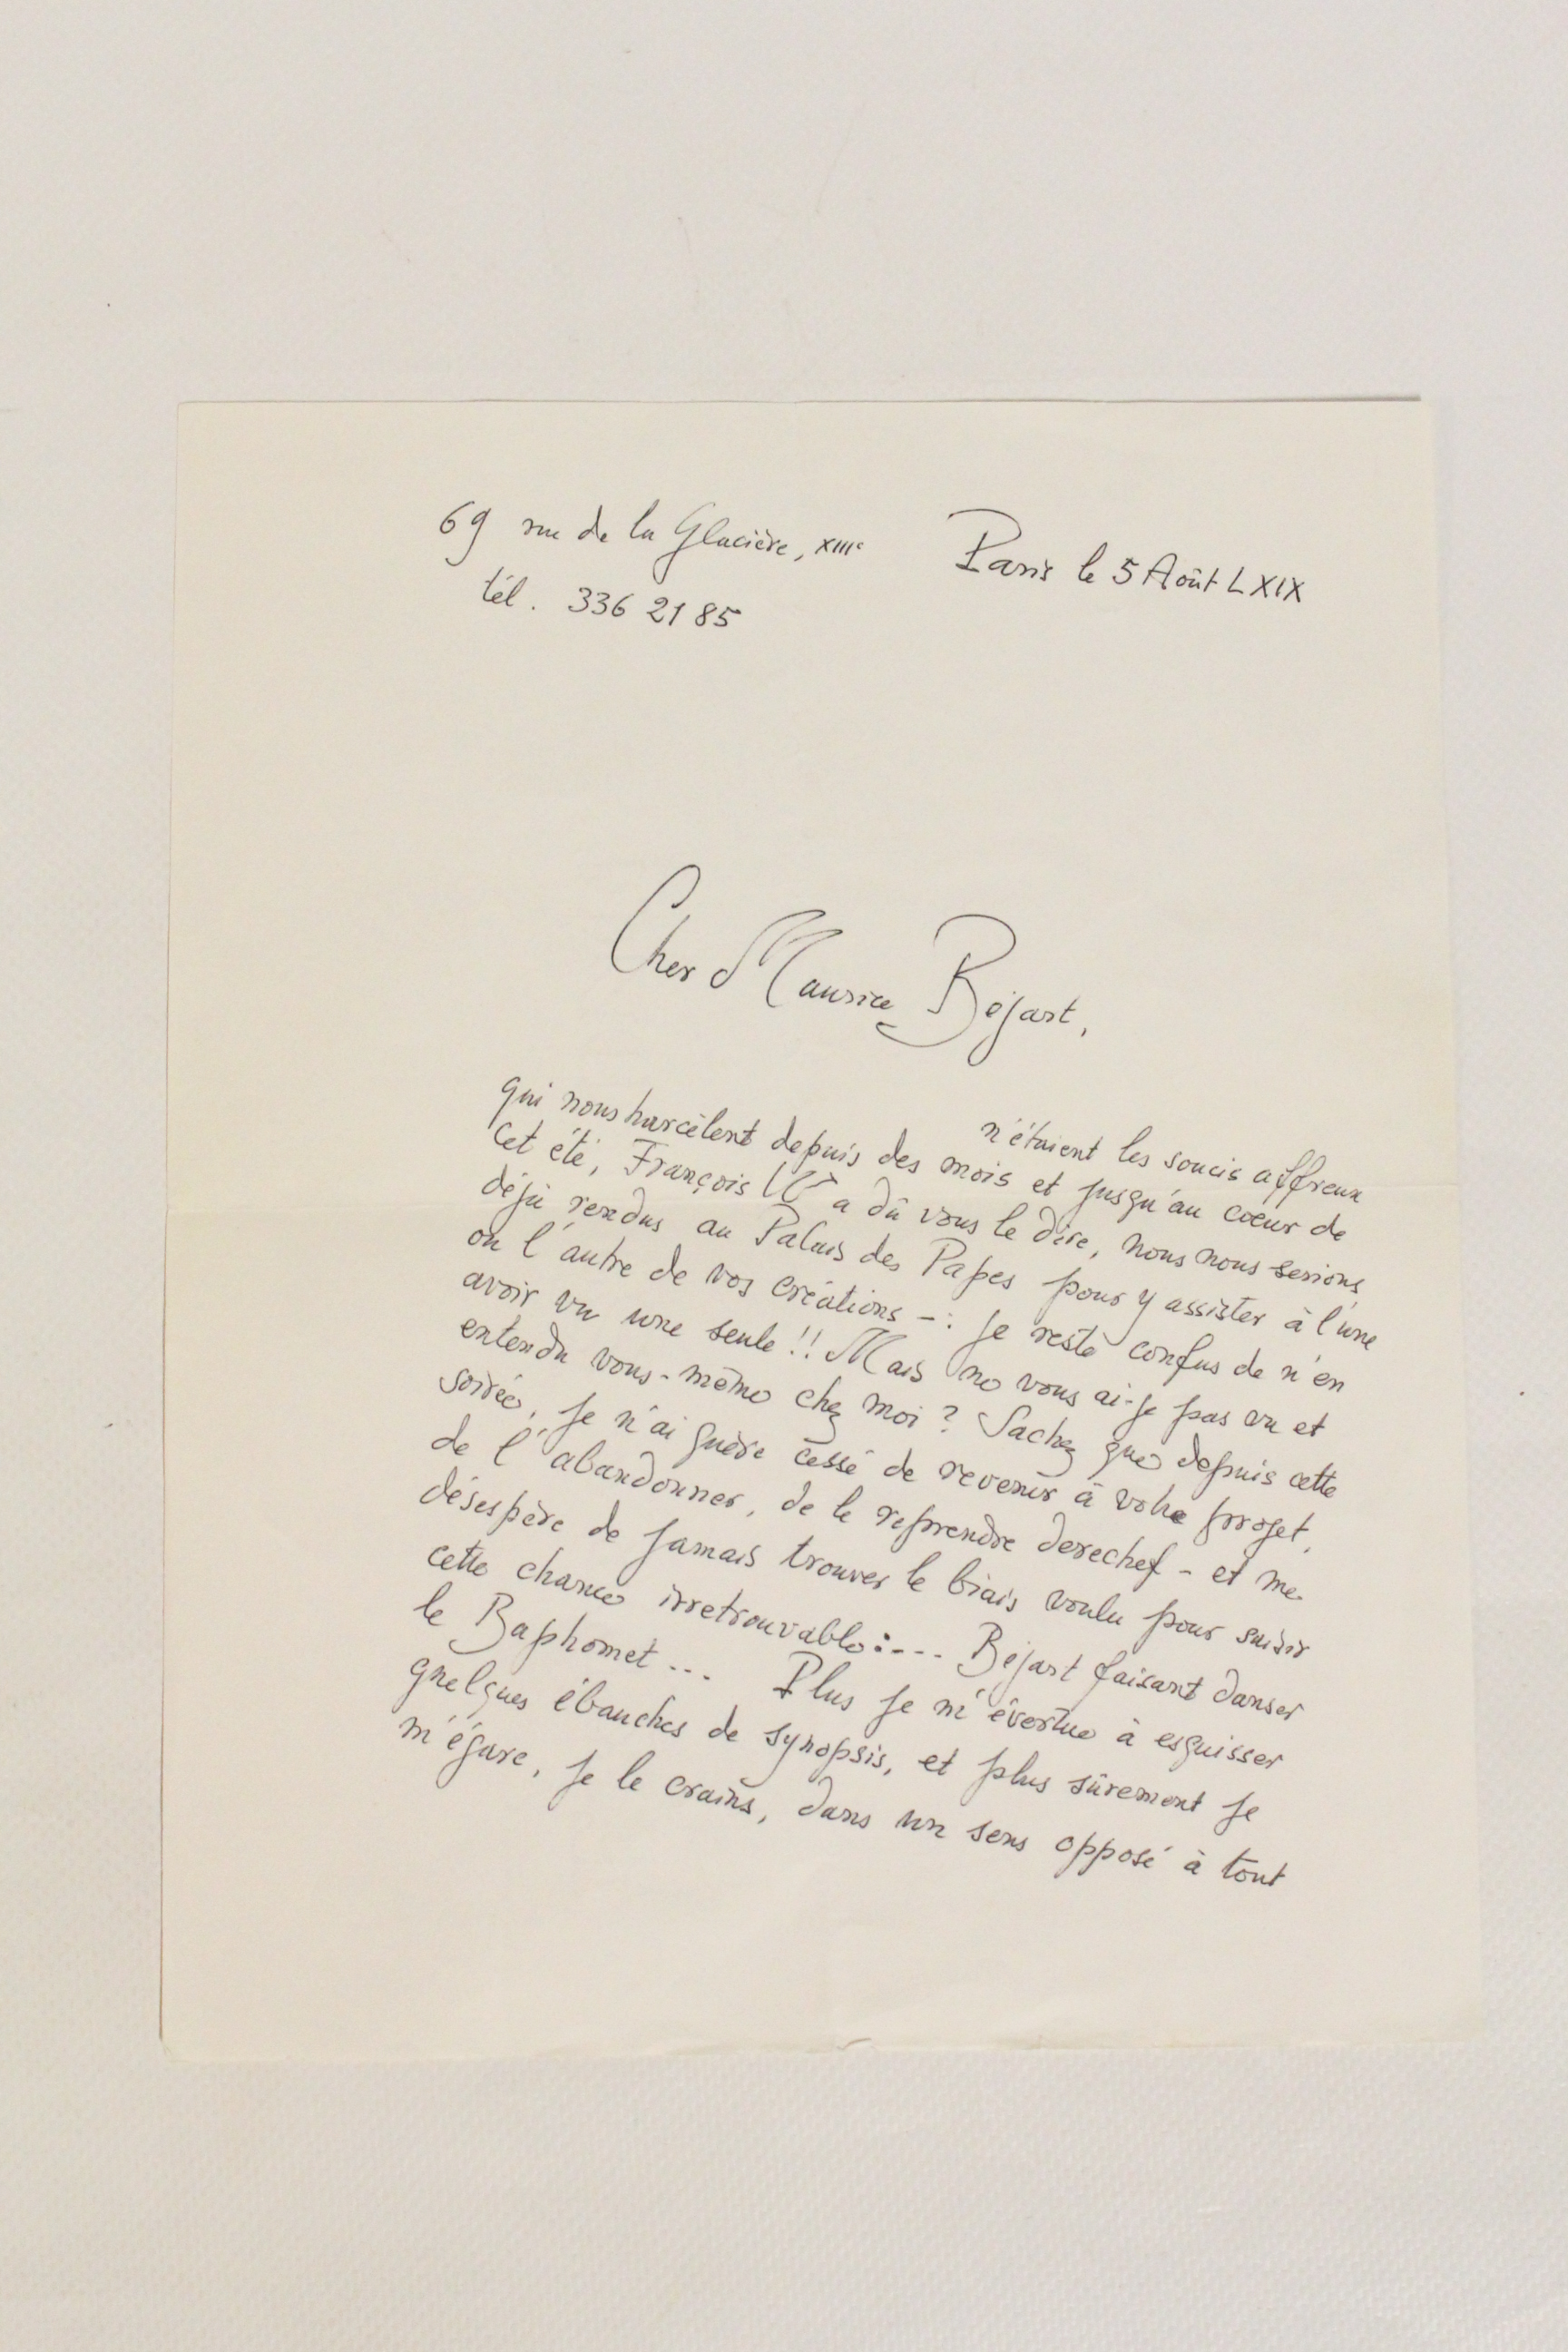 69 rue de la Glacière, XIIIe
Paris le 5 Août LXIX
tél. 336 21 85
Cher Maurice Béjart,
n'étaient les soucis affreux
qui nous harcèlent depuis des mois et jusqu'au cœur de
cet été, François a dû vous le dire, nous nous serions
déjà rendus au Palais des Papes pour y assister à l'une
ou l'autre de vos créations -: je reste confus de n'en
avoir vu une seule!! Mais ne vous ai-je pas vu et
entendu vous-même chez moi? Sachez que depuis cette
soirée, je n'ai guère cessé de revenir à votre projet,
de l'abandonner, de le reprendre derechef - et me
désespère de jamais trouver le biais voulu pour saisir
cette chance irretrouvable:--- Béjart faisant danser
le Baphomet... Plus je m'évertue à esquisser
quelques ébauches de synopsis, et plus sûrement je
m'égare, je le crains, dans un sens opposé à tout